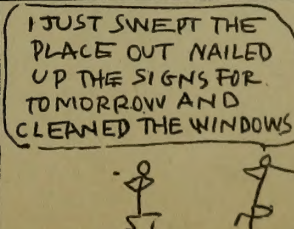 I JUST SWEPT THE
PLACE OUT NAILED
UP THE SIGNS FOR
TOMORROW AND
CLEANED THE WINDOWS